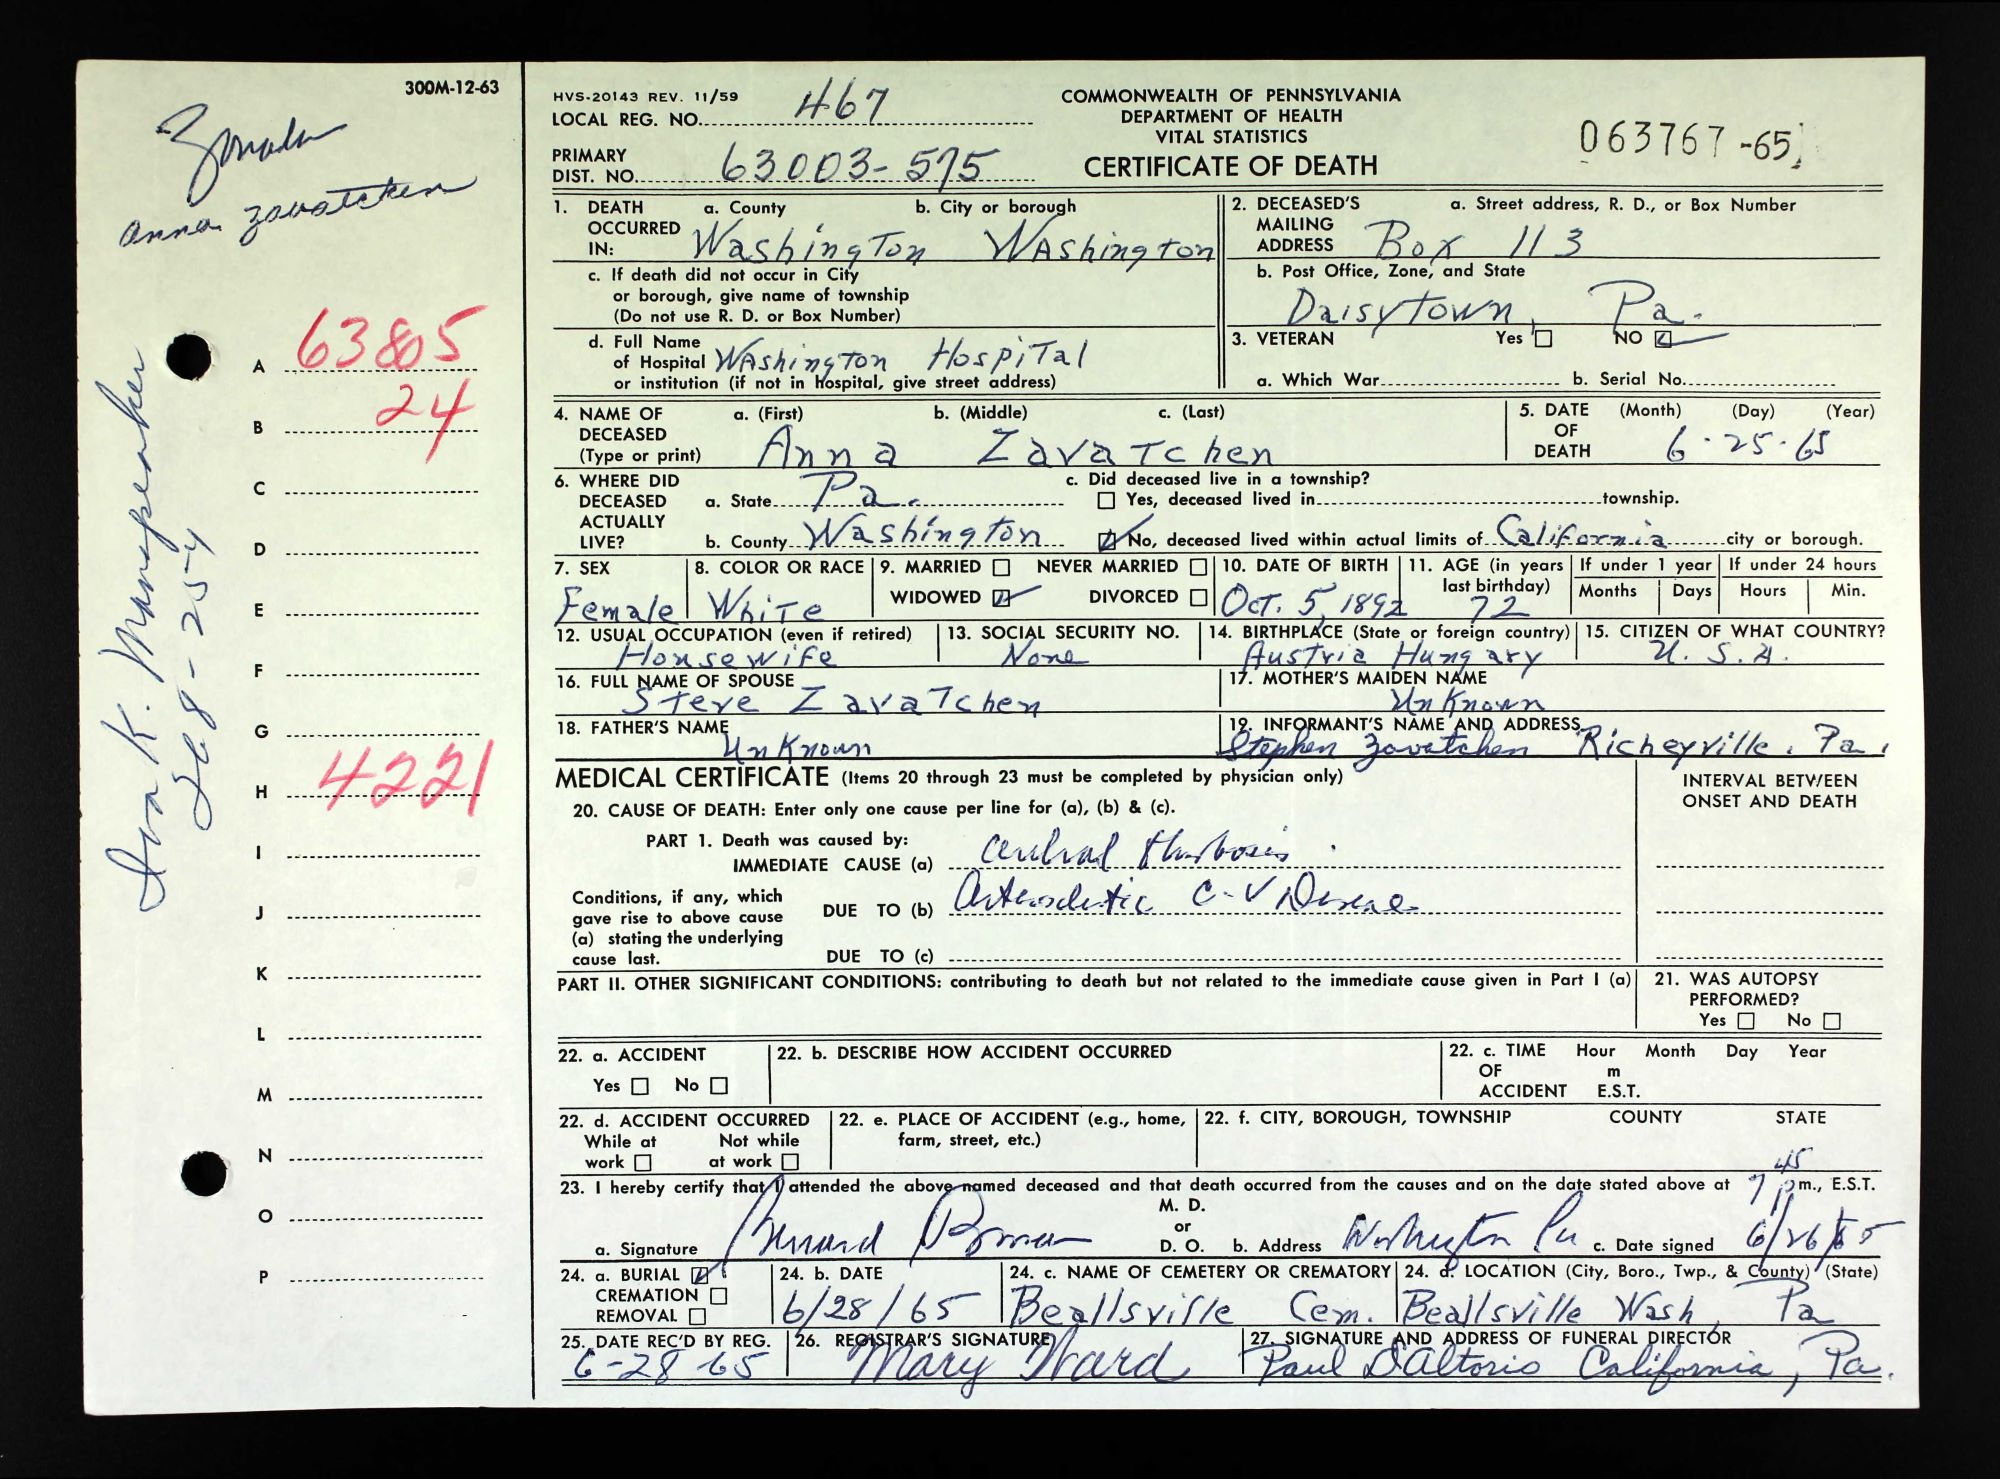 300M-12-63
anna zavatchen
A 63805
B 24
C
D
E
F
G
H 4221
I
J
K
L
M
N
O
P
268-254
HVS-20143 REV. 11/59
LOCAL REG. NO. 467
PRIMARY
DIST. NO. 63003-575
COMMONWEALTH OF PENNSYLVANIA
DEPARTMENT OF HEALTH
VITAL STATISTICS
CERTIFICATE OF DEATH
063767-65
1. DEATH OCCURRED IN: a. County b. City or borough
Washington Washington
c. If death did not occur in City
or borough, give name of township
(Do not use R. D. or Box Number)
d. Full Name
of Hospital Washington Hospital
or institution (if not in hospital, give street address)
2. DECEASED'S MAILING ADDRESS a. Street address, R. D., or Box Number
Box 113
b. Post Office, Zone, and State
Daisytown, Pa.
3. VETERAN Yes NO
a. Which War b. Serial No.
4. NAME OF DECEASED (Type or print) a. (First) b. (Middle) c. (Last)
Anna Zavatchen
5. DATE OF DEATH (Month) (Day) (Year)
6-25-65
6. WHERE DID DECEASED ACTUALLY LIVE?
a. State Pa.
b. County Washington
c. Did deceased live in a township?
Yes, deceased lived in township.
No, deceased lived within actual limits of California city or borough.
7. SEX
Female
8. COLOR OR RACE
White
9. MARRIED NEVER MARRIED
WIDOWED DIVORCED
10. DATE OF BIRTH
Oct. 5, 1892
11. AGE (in years last birthday)
72
If under 1 year
Months Days
If under 24 hours
Hours Min.
12. USUAL OCCUPATION (even if retired)
Housewife
13. SOCIAL SECURITY NO.
None
14. BIRTHPLACE (State or foreign country)
Austria Hungary
15. CITIZEN OF WHAT COUNTRY?
U. S. A.
16. FULL NAME OF SPOUSE
Steve Zavatchen
17. MOTHER'S MAIDEN NAME
Unknown
18. FATHER'S NAME
Unknown
19. INFORMANT'S NAME AND ADDRESS
Stephen Zavatchen Richeyville, Pa.
MEDICAL CERTIFICATE (Items 20 through 23 must be completed by physician only)
20. CAUSE OF DEATH: Enter only one cause per line for (a), (b) & (c).
INTERVAL BETWEEN
ONSET AND DEATH
PART 1. Death was caused by:
IMMEDIATE CAUSE (a) Cerebral thrombosis
Conditions, if any, which
gave rise to above cause
(a) stating the underlying
cause last.
DUE TO (b) Arteriosclerotic C-V Disease
DUE TO (c)
PART II. OTHER SIGNIFICANT CONDITIONS: contributing to death but not related to the immediate cause given in Part I (a)
21. WAS AUTOPSY
PERFORMED?
Yes No
22. a. ACCIDENT
Yes No
22. b. DESCRIBE HOW ACCIDENT OCCURRED
22. c. TIME OF ACCIDENT Hour Month Day Year
m
E.S.T.
22. d. ACCIDENT OCCURRED
While at work Not while at work
22. e. PLACE OF ACCIDENT (e.g., home,
farm, street, etc.)
22. f. CITY, BOROUGH, TOWNSHIP COUNTY STATE
23. I hereby certify that I attended the above named deceased and that death occurred from the causes and on the date stated above at 7 45 p m., E.S.T.
a. Signature Bernard M. D. or D. O. b. Address Washington Pa c. Date signed 6/26/65
24. a. BURIAL
CREMATION
REMOVAL
24. b. DATE
6/28/65
24. c. NAME OF CEMETERY OR CREMATORY
Beallsville Cem.
24. d. LOCATION (City, Boro., Twp., & County) (State)
Beallsville Wash, Pa
25. DATE REC'D BY REG.
6-28-65
26. REGISTRAR'S SIGNATURE
Mary Ward
27. SIGNATURE AND ADDRESS OF FUNERAL DIRECTOR
Paul DAltorio California, Pa.